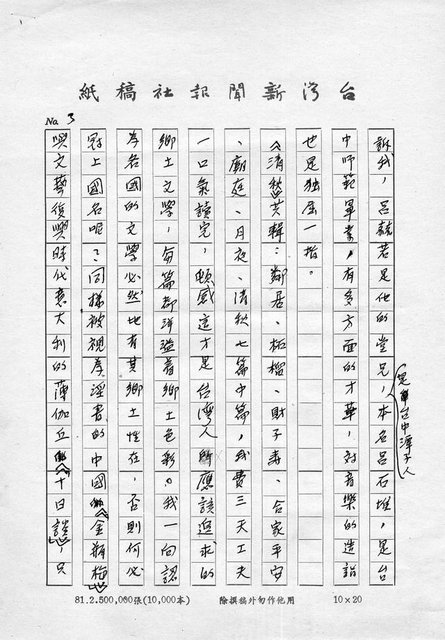 紙稿社報聞新灣台
No. 3
訴我，呂赫若是他的堂兄，本名呂石堆，是台
是台中潭子人
中師範畢業，有多方面的才華，對音樂的造詣
也是独屈一指。
《清秋》共輯：鄰居、柘榴、財子壽、合家平安
、廟庭、月夜、清秋七篇中篇，我費三天工夫
一口氣讀完，頓感這才是台灣人所應該追求的
鄉土文學，每篇都洋溢着鄉土色彩。我一向認
為各國的文學必然地有其鄉土性在，否則何必
冠上國名呢？同樣被視為淫書的中國《金瓶梅》
與文藝復興時代意大利的薄伽丘《十日談》，只
81.2.500,000張(10,000本) 除撰稿外勿作他用 10×20